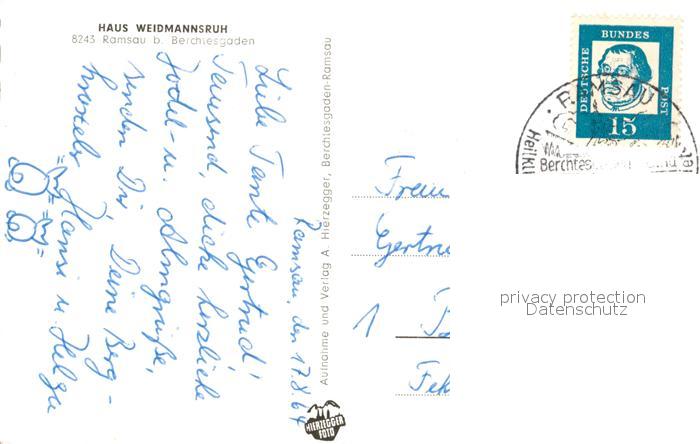 HAUS WEIDMANNSRUH
8243 Ramsau b. Berchtesgaden
Ramsau, den 17.8.64
Liebe Tante Gertrud!
Tausend, dicke herzliche
Jodel- u. Almgrüße,
senden Dir, Deine Berg-
kraxeler Hansi u. Helga
Aufnahme und Verlag A. Hierzegger, Berchtesgaden-Ramsau
HIERZEGGER
FOTO
DEUTSCHE BUNDES POST
15
RAMSAU
Heilkl
Berchtes
Frau
Gertru
1 B
privacy protection
Datenschutz